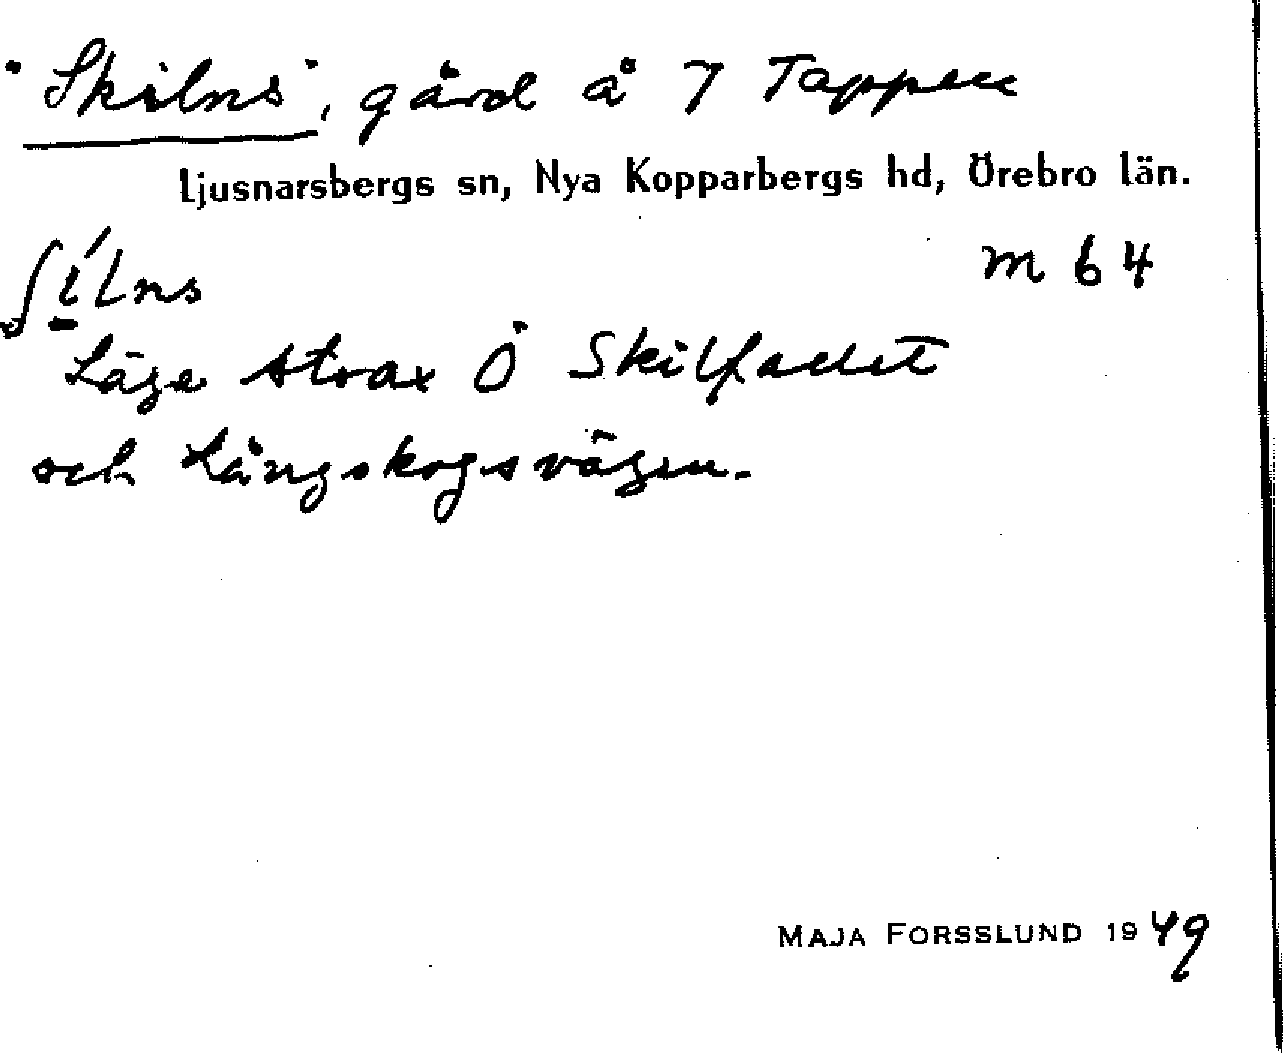 "Skilns", gård å 7 Tappen
Ljusnarsbergs sn, Nya Kopparbergs hd, Örebro län.
ʃı̱́lns m 64
Läge strax Ö Skilfallet
och Långskogsvägen.
MAJA FORSSLUND 1949